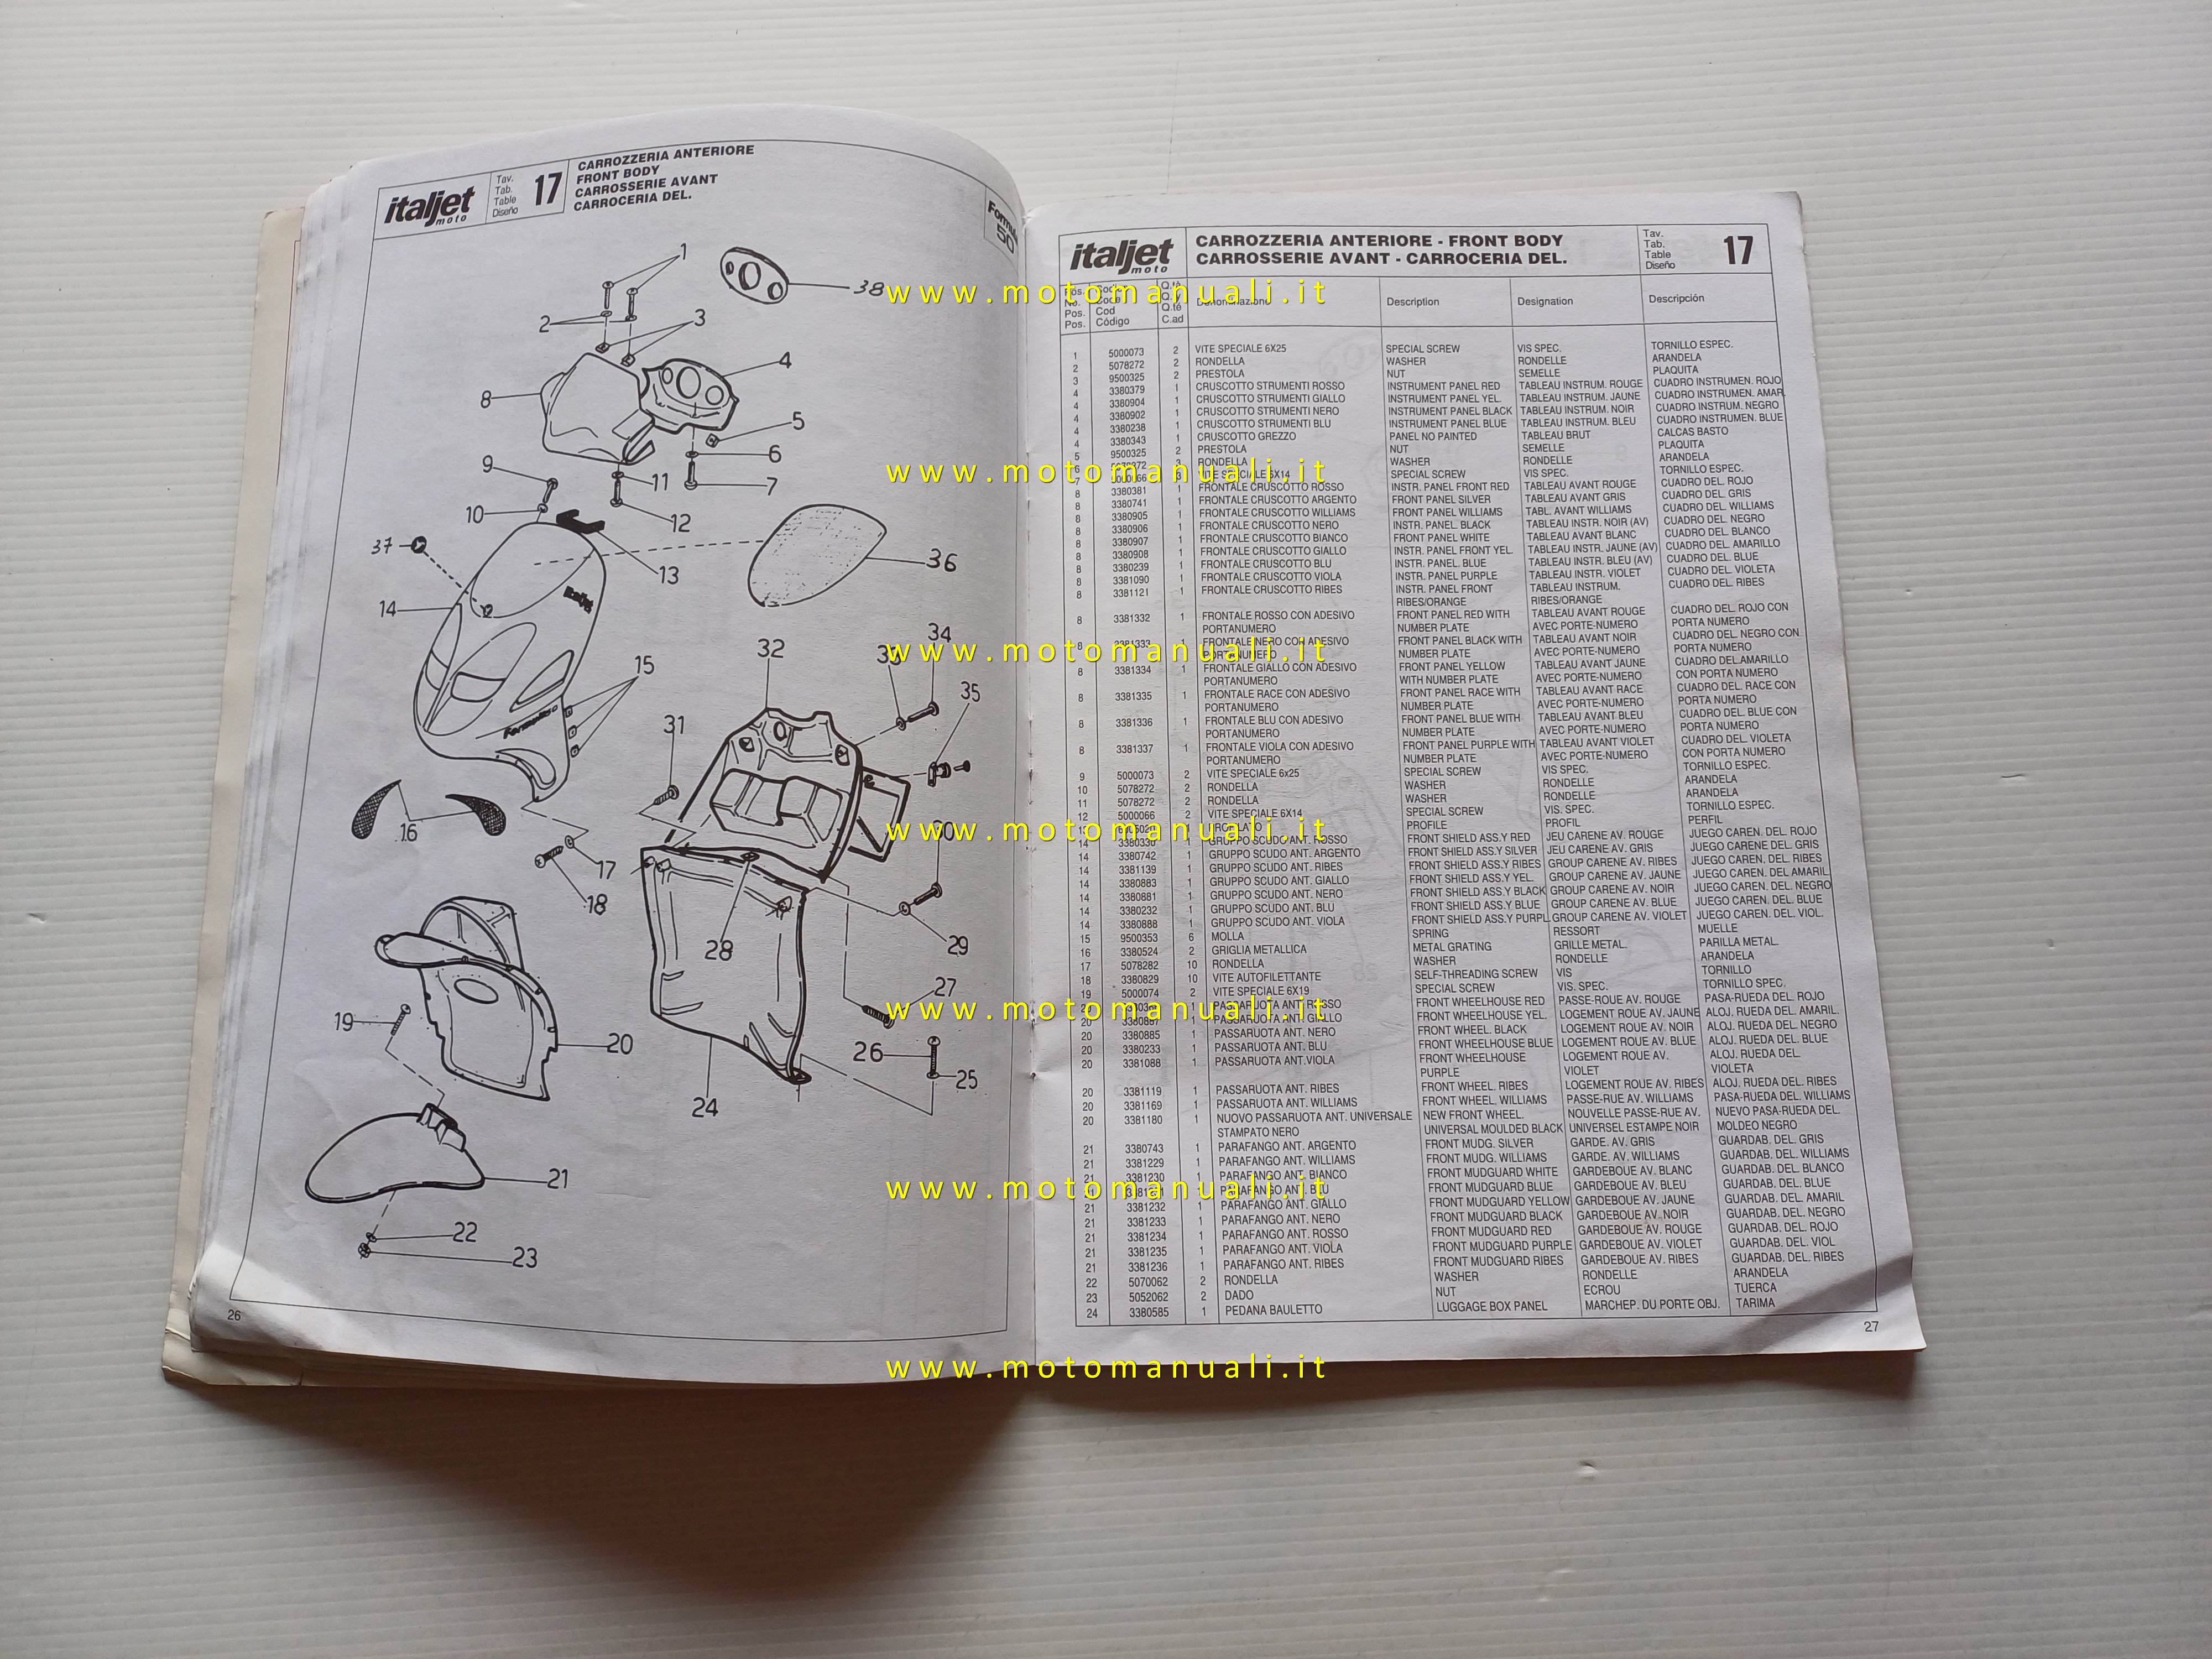 italjet
moto
Tav.
Tab.
Table
Diseño
17
CARROZZERIA ANTERIORE
FRONT BODY
CARROSSERIE AVANT
CARROCERIA DEL.
50
1
38
2
3
4
8
5
6
9
7
11
10
12
37
36
13
14
15
32
34
35
31
16
17
18
28
29
27
19
20
26
25
24
21
22
23
italjet
Formula 50
26
italjet
moto
CARROZZERIA ANTERIORE - FRONT BODY
CARROSSERIE AVANT - CARROCERIA DEL.
Tav.
Tab.
Table
Diseño
17
Pos. Cod Q.té
Pos. Código C.ad
Description Designation Descripción
1 5000073 2 VITE SPECIALE 6X25 SPECIAL SCREW VIS SPEC. TORNILLO ESPEC.
2 5078272 2 RONDELLA WASHER RONDELLE ARANDELA
3 9500325 2 PRESTOLA NUT SEMELLE PLAQUITA
4 3380379 1 CRUSCOTTO STRUMENTI ROSSO INSTRUMENT PANEL RED TABLEAU INSTRUM. ROUGE CUADRO INSTRUMEN. ROJO
4 3380904 1 CRUSCOTTO STRUMENTI GIALLO INSTRUMENT PANEL YEL. TABLEAU INSTRUM. JAUNE CUADRO INSTRUMEN. AMAR
4 3380902 1 CRUSCOTTO STRUMENTI NERO INSTRUMENT PANEL BLACK TABLEAU INSTRUM. NOIR CUADRO INSTRUM. NEGRO
4 3380238 1 CRUSCOTTO STRUMENTI BLU INSTRUMENT PANEL BLUE TABLEAU INSTRUM. BLEU CUADRO INSTRUMEN. BLUE
4 3380343 1 CRUSCOTTO GREZZO PANEL NO PAINTED TABLEAU BRUT CALCAS BASTO
5 9500325 2 PRESTOLA NUT SEMELLE PLAQUITA
6 RONDELLA WASHER RONDELLE ARANDELA
7 VITE SPECIALE 6X14 SPECIAL SCREW VIS SPEC. TORNILLO ESPEC.
8 3380381 1 FRONTALE CRUSCOTTO ROSSO INSTR. PANEL FRONT RED TABLEAU AVANT ROUGE CUADRO DEL. ROJO
8 3380741 1 FRONTALE CRUSCOTTO ARGENTO FRONT PANEL SILVER TABLEAU AVANT GRIS CUADRO DEL. GRIS
8 3380905 1 FRONTALE CRUSCOTTO WILLIAMS FRONT PANEL WILLIAMS TABL. AVANT WILLIAMS CUADRO DEL. WILLIAMS
8 3380906 1 FRONTALE CRUSCOTTO NERO INSTR. PANEL. BLACK TABLEAU INSTR. NOIR (AV) CUADRO DEL. NEGRO
8 3380907 1 FRONTALE CRUSCOTTO BIANCO FRONT PANEL WHITE TABLEAU AVANT BLANC CUADRO DEL. BLANCO
8 3380908 1 FRONTALE CRUSCOTTO GIALLO INSTR. PANEL FRONT YEL. TABLEAU INSTR. JAUNE (AV) CUADRO DEL. AMARILLO
8 3380239 1 FRONTALE CRUSCOTTO BLU INSTR. PANEL. BLUE TABLEAU INSTR. BLEU (AV) CUADRO DEL. BLUE
8 3381090 1 FRONTALE CRUSCOTTO VIOLA INSTR. PANEL PURPLE TABLEAU INSTR. VIOLET CUADRO DEL. VIOLETA
8 3381121 1 FRONTALE CRUSCOTTO RIBES INSTR. PANEL FRONT TABLEAU INSTRUM. CUADRO DEL. RIBES
RIBES/ORANGE RIBES/ORANGE
8 3381332 1 FRONTALE ROSSO CON ADESIVO FRONT PANEL RED WITH TABLEAU AVANT ROUGE CUADRO DEL. ROJO CON
PORTANUMERO NUMBER PLATE AVEC PORTE-NUMERO PORTA NUMERO
8 3381333 1 FRONTALE NERO CON ADESIVO FRONT PANEL BLACK WITH TABLEAU AVANT NOIR CUADRO DEL. NEGRO CON
PORTANUMERO NUMBER PLATE AVEC PORTE-NUMERO PORTA NUMERO
8 3381334 1 FRONTALE GIALLO CON ADESIVO FRONT PANEL YELLOW TABLEAU AVANT JAUNE CUADRO DEL.AMARILLO
PORTANUMERO WITH NUMBER PLATE AVEC PORTE-NUMERO CON PORTA NUMERO
8 3381335 1 FRONTALE RACE CON ADESIVO FRONT PANEL RACE WITH TABLEAU AVANT RACE CUADRO DEL. RACE CON
PORTANUMERO NUMBER PLATE AVEC PORTE-NUMERO PORTA NUMERO
8 3381336 1 FRONTALE BLU CON ADESIVO FRONT PANEL BLUE WITH TABLEAU AVANT BLEU CUADRO DEL. BLUE CON
PORTANUMERO NUMBER PLATE AVEC PORTE-NUMERO PORTA NUMERO
8 3381337 1 FRONTALE VIOLA CON ADESIVO FRONT PANEL PURPLE WITH TABLEAU AVANT VIOLET CUADRO DEL. VIOLETA
PORTANUMERO NUMBER PLATE AVEC PORTE-NUMERO CON PORTA NUMERO
9 5000073 2 VITE SPECIALE 6x25 SPECIAL SCREW VIS SPEC. TORNILLO ESPEC.
10 5078272 2 RONDELLA WASHER RONDELLE ARANDELA
11 5078272 2 RONDELLA WASHER RONDELLE ARANDELA
12 5000066 2 VITE SPECIALE 6X14 SPECIAL SCREW VIS. SPEC. TORNILLO ESPEC.
PROFILE PROFIL PERFIL
14 3380330 1 GRUPPO SCUDO ANT. ROSSO FRONT SHIELD ASS.Y RED JEU CARENE AV. ROUGE JUEGO CAREN. DEL. ROJO
14 3380742 1 GRUPPO SCUDO ANT. ARGENTO FRONT SHIELD ASS.Y SILVER JEU CARENE AV. GRIS JUEGO CARENE DEL. GRIS
14 3381139 1 GRUPPO SCUDO ANT. RIBES FRONT SHIELD ASS.Y RIBES GROUP CARENE AV. RIBES JUEGO CAREN. DEL. RIBES
14 3380883 1 GRUPPO SCUDO ANT. GIALLO FRONT SHIELD ASS.Y YEL. GROUP CARENE AV. JAUNE JUEGO CAREN. DEL. AMARIL
14 3380881 1 GRUPPO SCUDO ANT. NERO FRONT SHIELD ASS.Y BLACK GROUP CARENE AV. NOIR JUEGO CAREN. DEL. NEGRO
14 3380232 1 GRUPPO SCUDO ANT. BLU FRONT SHIELD ASS.Y BLUE GROUP CARENE AV. BLUE JUEGO CAREN. DEL. BLUE
14 3380888 1 GRUPPO SCUDO ANT. VIOLA FRONT SHIELD ASS.Y PURPL GROUP CARENE AV. VIOLET JUEGO CAREN. DEL. VIOL.
15 9500353 6 MOLLA SPRING RESSORT MUELLE
16 3380524 2 GRIGLIA METALLICA METAL GRATING GRILLE METAL. PARILLA METAL.
17 5078282 10 RONDELLA WASHER RONDELLE ARANDELA
18 3380829 10 VITE AUTOFILETTANTE SELF-THREADING SCREW VIS TORNILLO
19 5000074 2 VITE SPECIALE 6X19 SPECIAL SCREW VIS. SPEC. TORNILLO SPEC.
1 PASSARUOTA ANT. ROSSO FRONT WHEELHOUSE RED PASSE-ROUE AV. ROUGE PASA-RUEDA DEL. ROJO
20 1 PASSARUOTA ANT. GIALLO FRONT WHEELHOUSE YEL. LOGEMENT ROUE AV. JAUNE ALOJ. RUEDA DEL. AMARIL.
20 3380885 1 PASSARUOTA ANT. NERO FRONT WHEEL. BLACK LOGEMENT ROUE AV. NOIR ALOJ. RUEDA DEL. NEGRO
20 3380233 1 PASSARUOTA ANT. BLU FRONT WHEELHOUSE BLUE LOGEMENT ROUE AV. BLUE ALOJ. RUEDA DEL. BLUE
20 3381088 1 PASSARUOTA ANT.VIOLA FRONT WHEELHOUSE LOGEMENT ROUE AV. ALOJ. RUEDA DEL.
PURPLE VIOLET VIOLETA
20 3381119 1 PASSARUOTA ANT. RIBES FRONT WHEEL. RIBES LOGEMENT ROUE AV. RIBES ALOJ. RUEDA DEL. RIBES
20 3381169 1 PASSARUOTA ANT. WILLIAMS FRONT WHEEL. WILLIAMS PASSE-RUE AV. WILLIAMS PASA-RUEDA DEL. WILLIAMS
20 3381180 1 NUOVO PASSARUOTA ANT. UNIVERSALE NEW FRONT WHEEL. NOUVELLE PASSE-RUE AV. NUEVO PASA-RUEDA DEL.
STAMPATO NERO UNIVERSAL MOULDED BLACK UNIVERSEL ESTAMPE NOIR MOLDEO NEGRO
21 3380743 1 PARAFANGO ANT. ARGENTO FRONT MUDG. SILVER GARDE. AV. GRIS GUARDAB. DEL. GRIS
21 3381229 1 PARAFANGO ANT. WILLIAMS FRONT MUDG. WILLIAMS GARDE. AV. WILLIAMS GUARDAB. DEL. WILLIAMS
21 3381230 1 PARAFANGO ANT. BIANCO FRONT MUDGUARD WHITE GARDEBOUE AV. BLANC GUARDAB. DEL. BLANCO
21 1 PARAFANGO ANT. BLU FRONT MUDGUARD BLUE GARDEBOUE AV. BLEU GUARDAB. DEL. BLUE
21 3381232 1 PARAFANGO ANT. GIALLO FRONT MUDGUARD YELLOW GARDEBOUE AV. JAUNE GUARDAB. DEL. AMARIL
21 3381233 1 PARAFANGO ANT. NERO FRONT MUDGUARD BLACK GARDEBOUE AV. NOIR GUARDAB. DEL. NEGRO
21 3381234 1 PARAFANGO ANT. ROSSO FRONT MUDGUARD RED GARDEBOUE AV. ROUGE GUARDAB. DEL. ROJO
21 3381235 1 PARAFANGO ANT. VIOLA FRONT MUDGUARD PURPLE GARDEBOUE AV. VIOLET GUARDAB. DEL. VIOL
21 3381236 1 PARAFANGO ANT. RIBES FRONT MUDGUARD RIBES GARDEBOUE AV. RIBES GUARDAB. DEL. RIBES
22 5070062 2 RONDELLA WASHER RONDELLE ARANDELA
23 5052062 2 DADO NUT ECROU TUERCA
24 3380585 1 PEDANA BAULETTO LUGGAGE BOX PANEL MARCHEP. DU PORTE OBJ. TARIMA
27
www.motomanuali.it
www.motomanuali.it
www.motomanuali.it
www.motomanuali.it
www.motomanuali.it
www.motomanuali.it
www.motomanuali.it